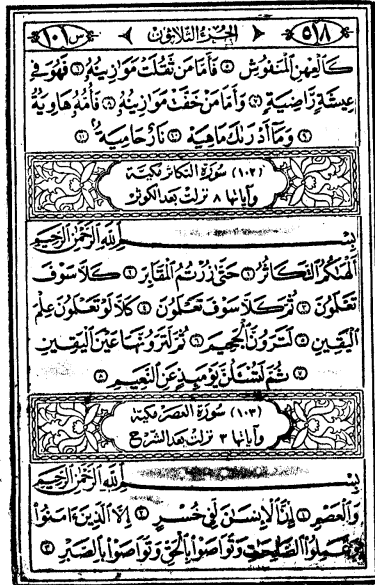 ٥١٨ الجزء الثلاثون س ١٠١
كَالْعِهْنِ الْمَنفُوشِ ٥ فَأَمَّا مَن ثَقُلَتْ مَوَازِينُهُ ٦ فَهُوَ فِي
عِيشَةٍ رَّاضِيَةٍ ٧ وَأَمَّا مَنْ خَفَّتْ مَوَازِينُهُ ٨ فَأُمُّهُ هَاوِيَةٌ
٩ وَمَا أَدْرَىٰكَ مَا هِيَهْ ١٠ نَارٌ حَامِيَةٌ ١١
(١٠٢) سورة التكاثر مكية
وآياتها ٨ نزلت بعد الكوثر
بِسْمِ اللَّهِ الرَّحْمَٰنِ الرَّحِيمِ
أَلْهَىٰكُمُ التَّكَاثُرُ ١ حَتَّىٰ زُرْتُمُ الْمَقَابِرَ ٢ كَلَّا سَوْفَ
تَعْلَمُونَ ٣ ثُمَّ كَلَّا سَوْفَ تَعْلَمُونَ ٤ كَلَّا لَوْ تَعْلَمُونَ عِلْمَ
الْيَقِينِ ٥ لَتَرَوُنَّ الْجَحِيمَ ٦ ثُمَّ لَتَرَوُنَّهَا عَيْنَ الْيَقِينِ
٧ ثُمَّ لَتُسْـَٔلُنَّ يَوْمَئِذٍ عَنِ النَّعِيمِ ٨
(١٠٣) سورة العصر مكية
وآياتها ٣ نزلت بعد الشرح
بِسْمِ اللَّهِ الرَّحْمَٰنِ الرَّحِيمِ
وَالْعَصْرِ ١ إِنَّ الْإِنسَٰنَ لَفِي خُسْرٍ ٢ إِلَّا الَّذِينَ ءَامَنُوا
وَعَمِلُوا الصَّٰلِحَٰتِ وَتَوَاصَوْا بِالْحَقِّ وَتَوَاصَوْا بِالصَّبْرِ ٣